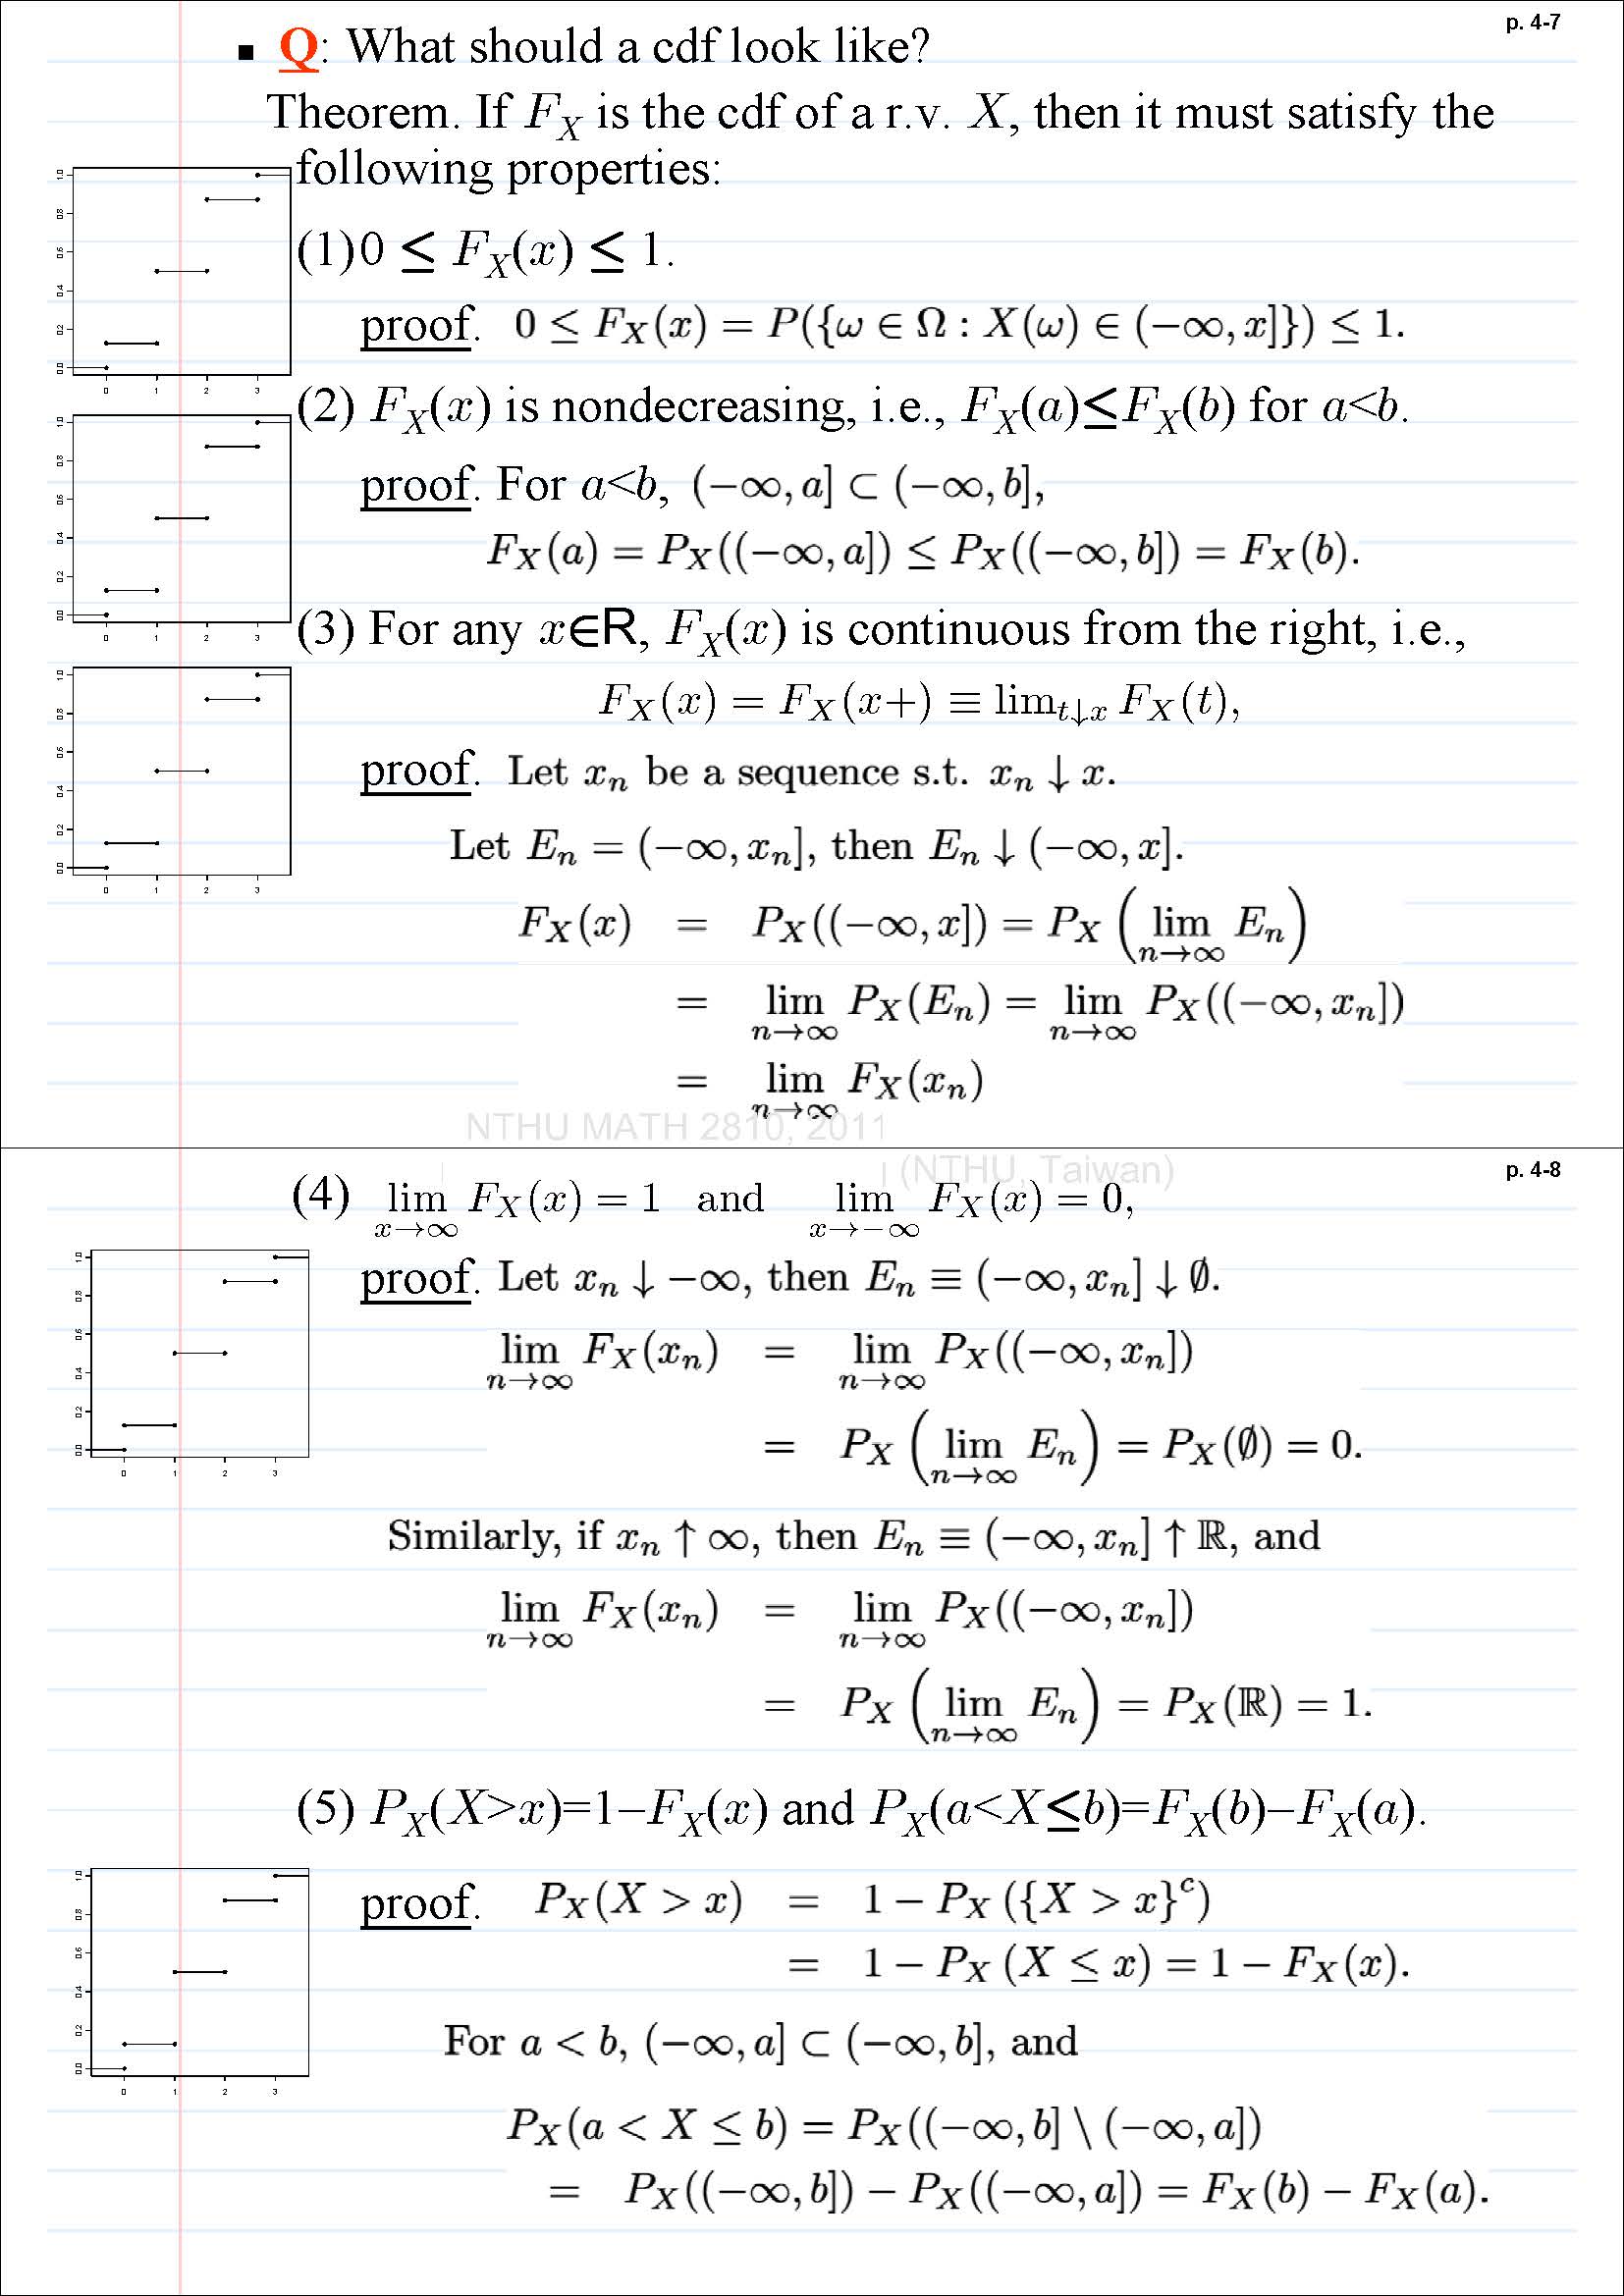 p. 4-7
▪ Q: What should a cdf look like?
Theorem. If F_X is the cdf of a r.v. X, then it must satisfy the
following properties:
(1) 0 ≤ F_X(x) ≤ 1.
proof. 0 ≤ F_X(x) = P({ω ∈ Ω : X(ω) ∈ (−∞, x]}) ≤ 1.
0.0 0.2 0.4 0.6 0.8 1.0
0 1 2 3
(2) F_X(x) is nondecreasing, i.e., F_X(a)≤F_X(b) for a<b.
proof. For a<b, (−∞, a] ⊂ (−∞, b],
F_X(a) = P_X((−∞, a]) ≤ P_X((−∞, b]) = F_X(b).
0.0 0.2 0.4 0.6 0.8 1.0
0 1 2 3
(3) For any x∈R, F_X(x) is continuous from the right, i.e.,
F_X(x) = F_X(x+) ≡ lim_{t↓x} F_X(t),
proof. Let x_n be a sequence s.t. x_n ↓ x.
Let E_n = (−∞, x_n], then E_n ↓ (−∞, x].
0.0 0.2 0.4 0.6 0.8 1.0
0 1 2 3
F_X(x) = P_X((−∞, x]) = P_X (lim_{n→∞} E_n)
= lim_{n→∞} P_X(E_n) = lim_{n→∞} P_X((−∞, x_n])
= lim_{n→∞} F_X(x_n)
NTHU MATH 2810, 2011
(NTHU, Taiwan)
p. 4-8
(4) lim_{x→∞} F_X(x) = 1 and lim_{x→−∞} F_X(x) = 0,
proof. Let x_n ↓ −∞, then E_n ≡ (−∞, x_n] ↓ ∅.
lim_{n→∞} F_X(x_n) = lim_{n→∞} P_X((−∞, x_n])
= P_X (lim_{n→∞} E_n) = P_X(∅) = 0.
0.0 0.2 0.4 0.6 0.8 1.0
0 1 2 3
Similarly, if x_n ↑ ∞, then E_n ≡ (−∞, x_n] ↑ ℝ, and
lim_{n→∞} F_X(x_n) = lim_{n→∞} P_X((−∞, x_n])
= P_X (lim_{n→∞} E_n) = P_X(ℝ) = 1.
(5) P_X(X>x)=1−F_X(x) and P_X(a<X≤b)=F_X(b)−F_X(a).
proof. P_X(X > x) = 1 − P_X ({X > x}^c)
= 1 − P_X (X ≤ x) = 1 − F_X(x).
0.0 0.2 0.4 0.6 0.8 1.0
0 1 2 3
For a < b, (−∞, a] ⊂ (−∞, b], and
P_X(a < X ≤ b) = P_X((−∞, b] \ (−∞, a])
= P_X((−∞, b]) − P_X((−∞, a]) = F_X(b) − F_X(a).